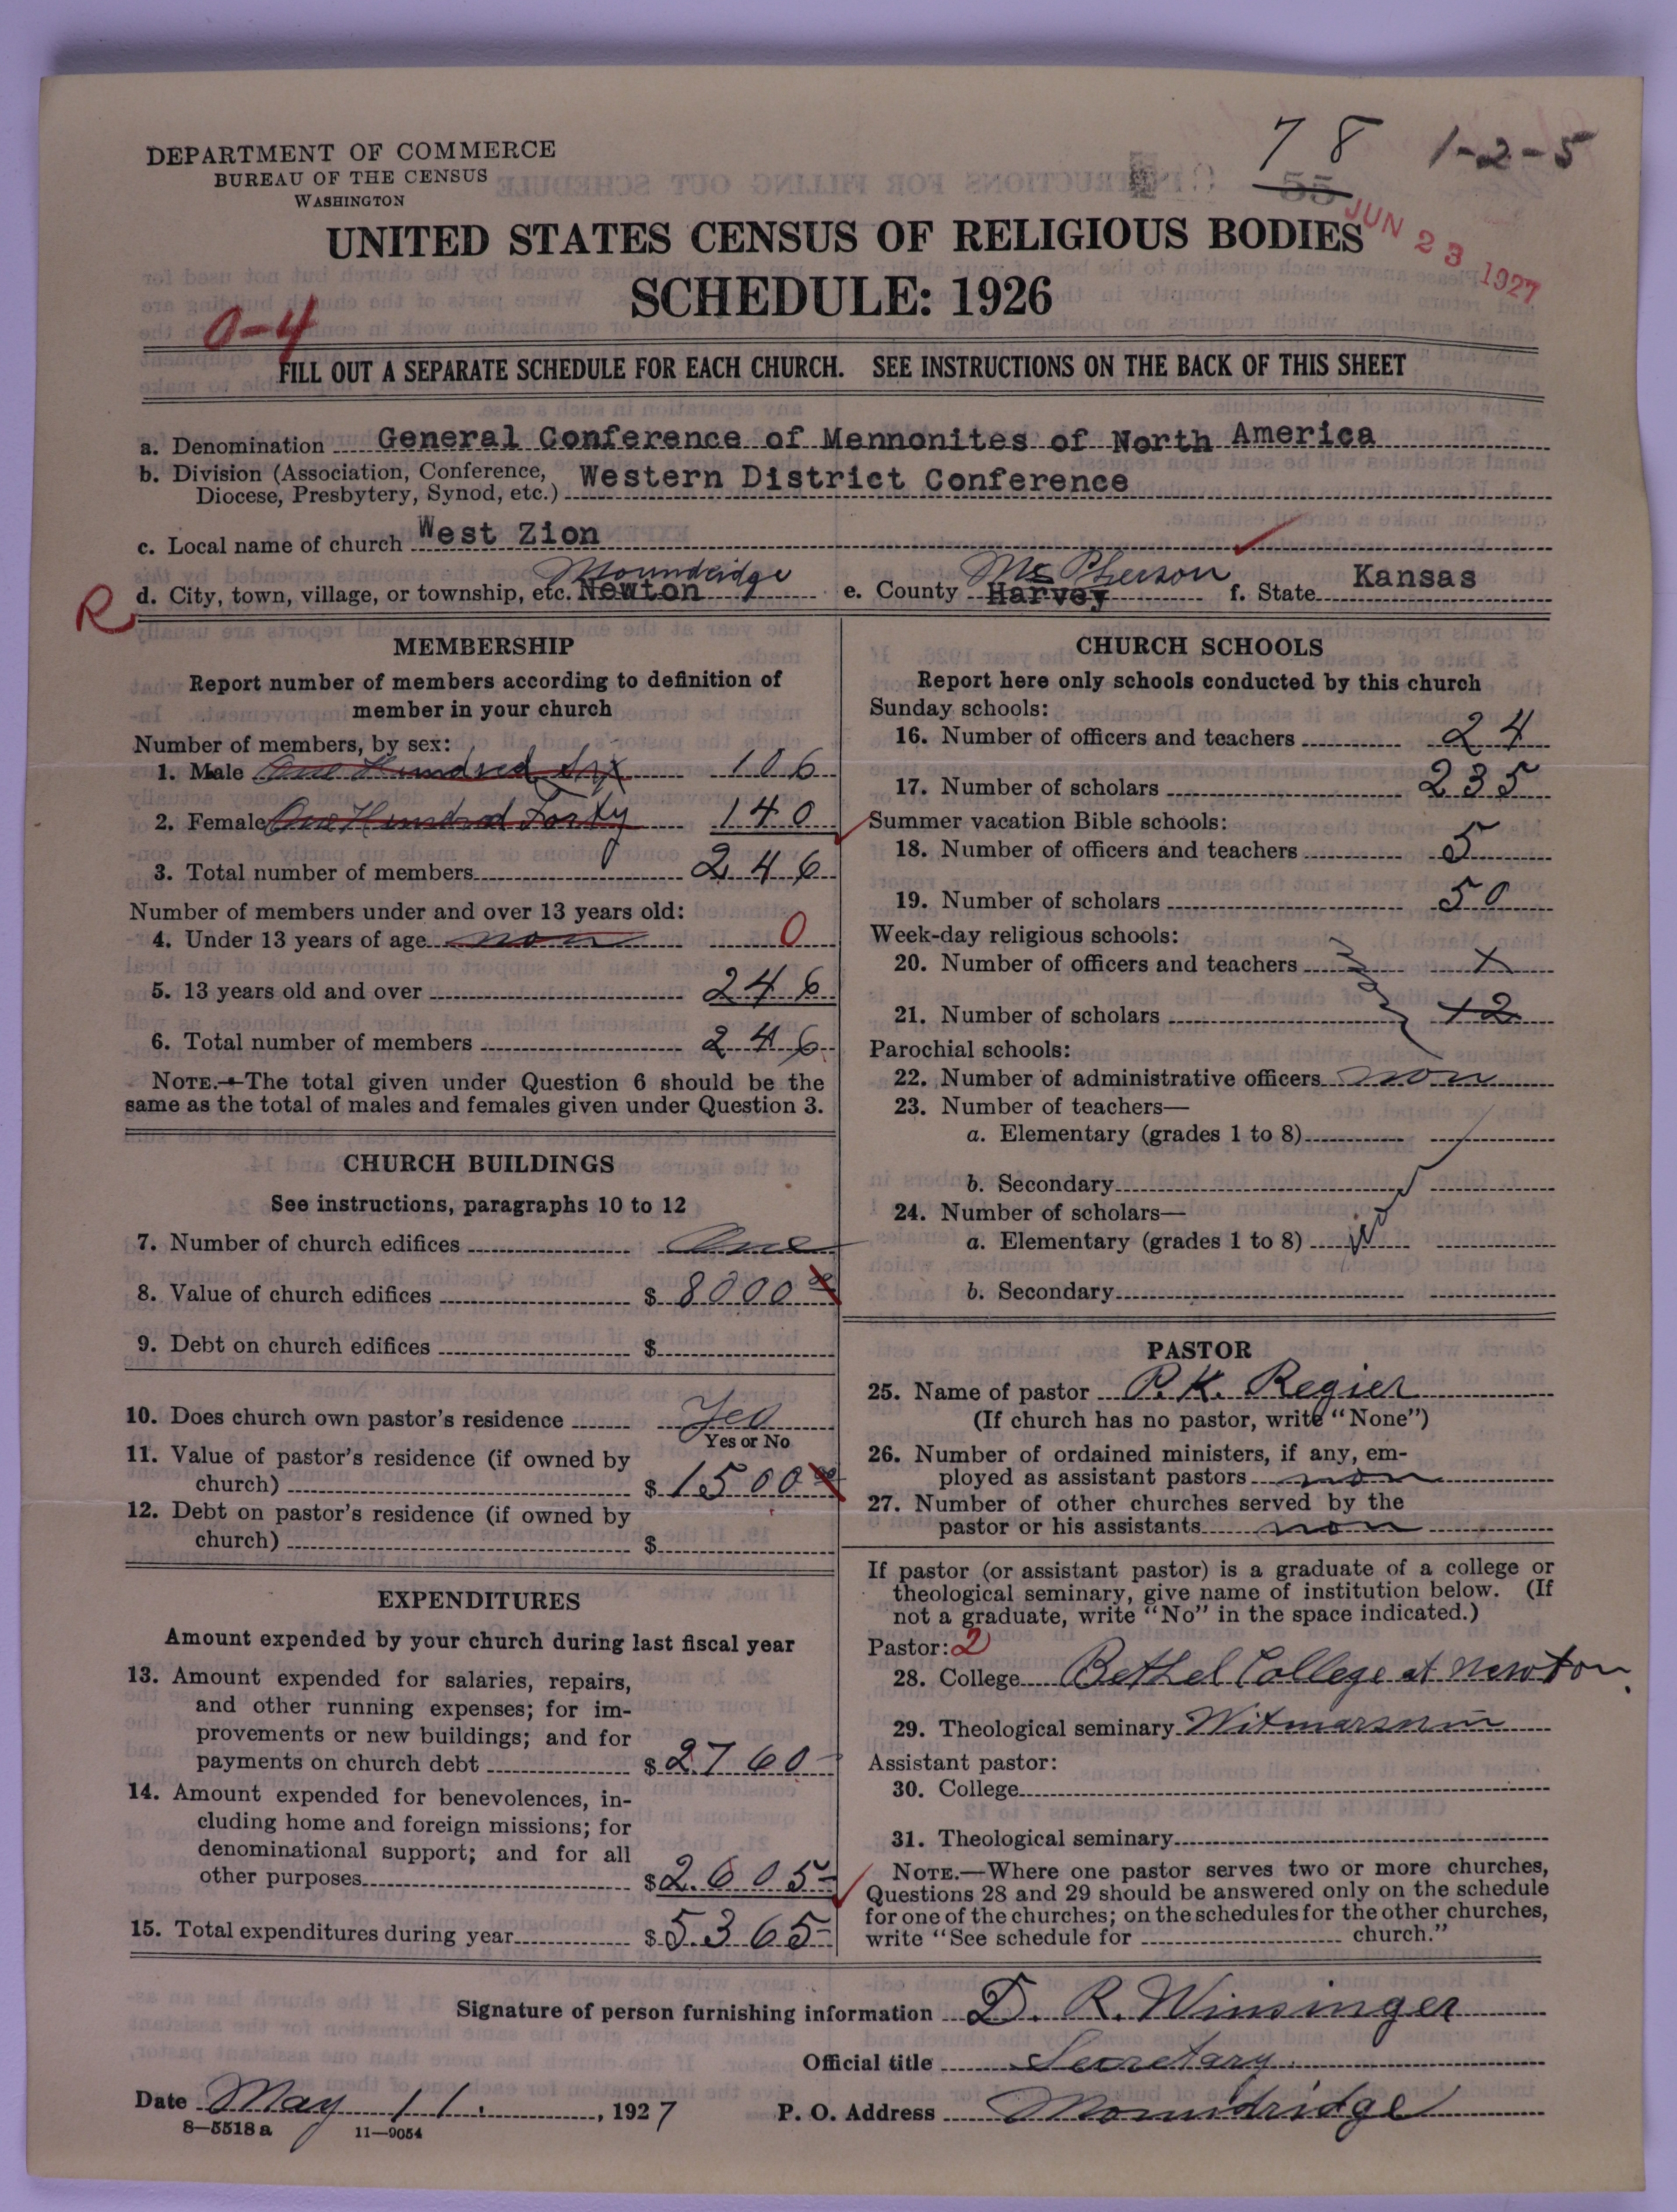 DEPARTMENT OF COMMERCE
BUREAU OF THE CENSUS
WASHINGTON
78 1-2-5
55
JUN 23 1927
UNITED STATES CENSUS OF RELIGIOUS BODIES
SCHEDULE: 1926
0-4
FILL OUT A SEPARATE SCHEDULE FOR EACH CHURCH. SEE INSTRUCTIONS ON THE BACK OF THIS SHEET
a. Denomination General Conference of Mennonites of North America
b. Division (Association, Conference, Diocese, Presbytery, Synod, etc.) Western District Conference
c. Local name of church West Zion
R
d. City, town, village, or township, etc. Newton Moundridge e. County Harvey Mc Pherson f. State Kansas
MEMBERSHIP
Report number of members according to definition of
member in your church
Number of members, by sex:
1. Male One Hundred Six 106
2. Female One Hundred Forty 140
3. Total number of members 246
Number of members under and over 13 years old:
4. Under 13 years of age non 0
5. 13 years old and over 246
6. Total number of members 246
NOTE.—The total given under Question 6 should be the
same as the total of males and females given under Question 3.
CHURCH BUILDINGS
See instructions, paragraphs 10 to 12
7. Number of church edifices One
8. Value of church edifices $ 8000 00
9. Debt on church edifices $
10. Does church own pastor's residence Yes
Yes or No
11. Value of pastor's residence (if owned by
church) $ 1500 00
12. Debt on pastor's residence (if owned by
church) $
EXPENDITURES
Amount expended by your church during last fiscal year
13. Amount expended for salaries, repairs,
and other running expenses; for im-
provements or new buildings; and for
payments on church debt $ 2760-
14. Amount expended for benevolences, in-
cluding home and foreign missions; for
denominational support; and for all
other purposes $ 2605-
15. Total expenditures during year $ 5365-
CHURCH SCHOOLS
Report here only schools conducted by this church
Sunday schools:
16. Number of officers and teachers 24
17. Number of scholars 235
Summer vacation Bible schools:
18. Number of officers and teachers 5
19. Number of scholars 50
Week-day religious schools:
20. Number of officers and teachers x
21. Number of scholars
Parochial schools:
22. Number of administrative officers non
23. Number of teachers—
a. Elementary (grades 1 to 8)
b. Secondary
24. Number of scholars—
a. Elementary (grades 1 to 8)
b. Secondary
PASTOR
25. Name of pastor P. K. Regier
(If church has no pastor, write "None")
26. Number of ordained ministers, if any, em-
ployed as assistant pastors non
27. Number of other churches served by the
pastor or his assistants non
If pastor (or assistant pastor) is a graduate of a college or
theological seminary, give name of institution below. (If
not a graduate, write "No" in the space indicated.)
Pastor: 2
28. College Bethel College at Newton.
29. Theological seminary Witmarsum
Assistant pastor:
30. College
31. Theological seminary
NOTE.—Where one pastor serves two or more churches,
Questions 28 and 29 should be answered only on the schedule
for one of the churches; on the schedules for the other churches,
write "See schedule for church."
Signature of person furnishing information D. R. Winsinger
Official title Secretary
Date May 11, 1927 P. O. Address Moundridge
8—5518a 11—9054